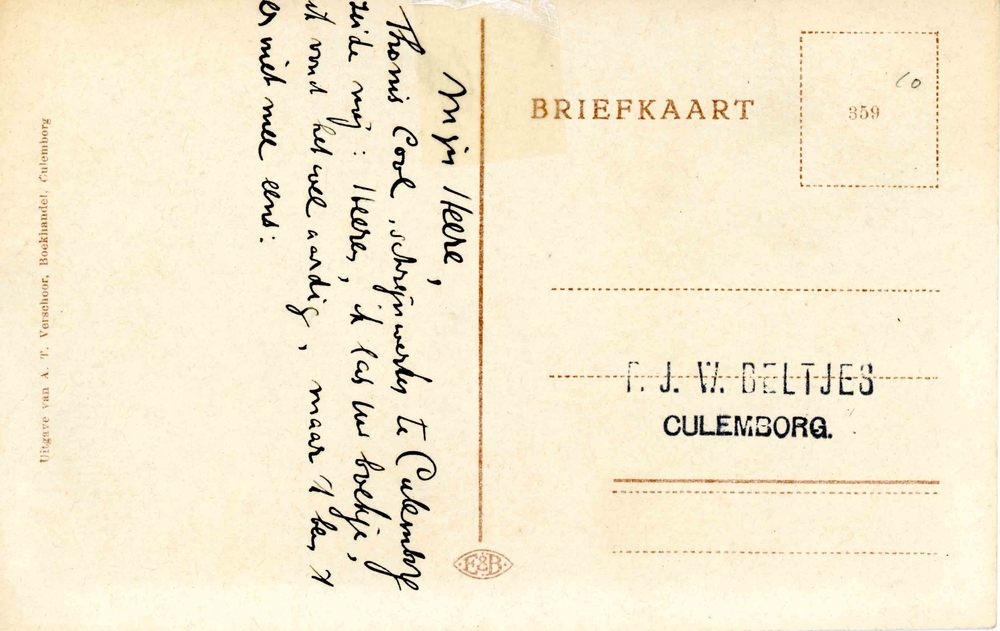 Mijn Heere,
Thonis Cool, schrijnwerker te Culemborg
zeide mij: Heere, ik las uw boekje,
ik vond het wel aardig, maar 'k ben 't
er niet mee eens:
BRIEFKAART
359
F. J. W. BELTJES
CULEMBORG.
E&B
Uitgave van A. T. Verschoor, Boekhandel, Culemborg